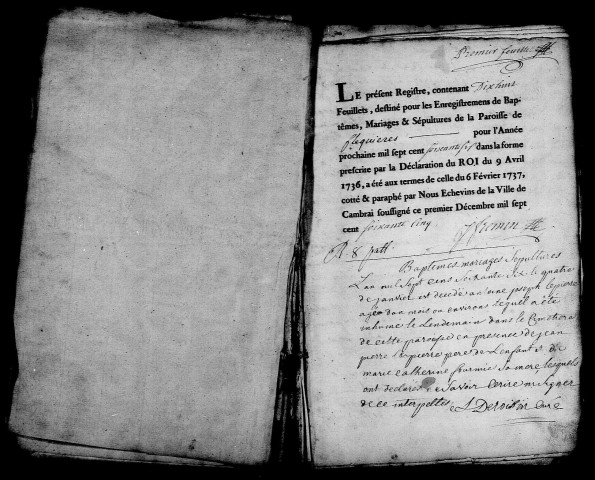 Premier feuillet
LE présent Registre, contenant Dixhuit
Feuillets, destiné pour les Enregistremens de Bap-
têmes, Mariages & Sépultures de la Paroisse de
pour l'Année
prochaine mil sept cent soixante six dans la forme
prescrite par la Déclaration du ROI du 9 Avril
1736, a été aux termes de celle du 6 Février 1737,
cotté & paraphé par Nous Echevins de la Ville de
Cambrai soussigné ce premier Décembre mil sept
cent soixante cinq
R 8 patt
Baptemes, mariages Sepultures
L'an mil Sept cens Soixante Six le quatre
de janvier est decedé joseph
agé d'un mois ou environs lequel a été
inhumé le Lendemain dans le Cimetiere
de cette paroisse en presence de jean
pierre pere de L'enfant et de
marie catherine Sa mere lesquels
ont declarés ne Savoir Ecrire ni Signer
de ce interpellés
Curé